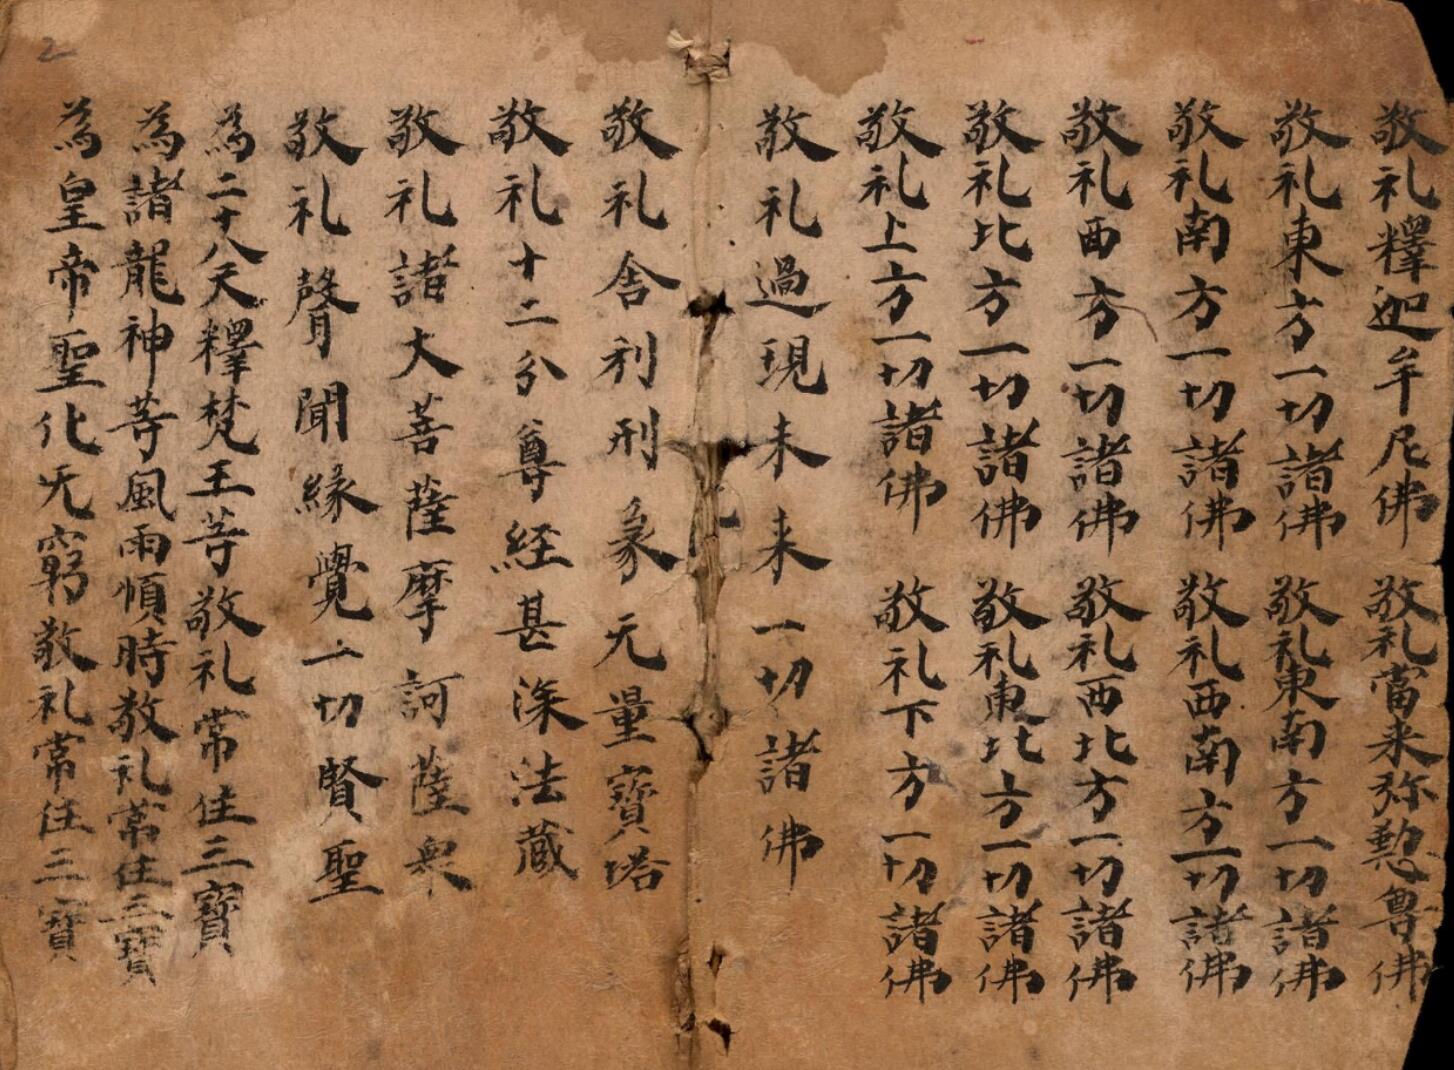 敬礼釋迦牟尼佛 敬礼當来弥勲尊佛
敬礼東方一切諸佛 敬礼東南方一切諸佛
敬礼南方一切諸佛 敬礼西南方一切諸佛
敬礼西方一切諸佛 敬礼西北方一切諸佛
敬礼比方一切諸佛 敬礼東北方一切諸佛
敬礼上方一切諸佛 敬礼下方一切諸佛
敬礼過現未来一切諸佛
敬礼舎利刑象无量寶塔
敬礼十二分尊経甚深法蔵
敬礼諸大菩薩摩訶薩衆
敬礼聲聞緣覺一切賢聖
為二十八天釋梵王等敬礼常住三寶
為諸龍神等風雨順時敬礼常住三寶
為皇帝聖化无窮敬礼常住三寶
2